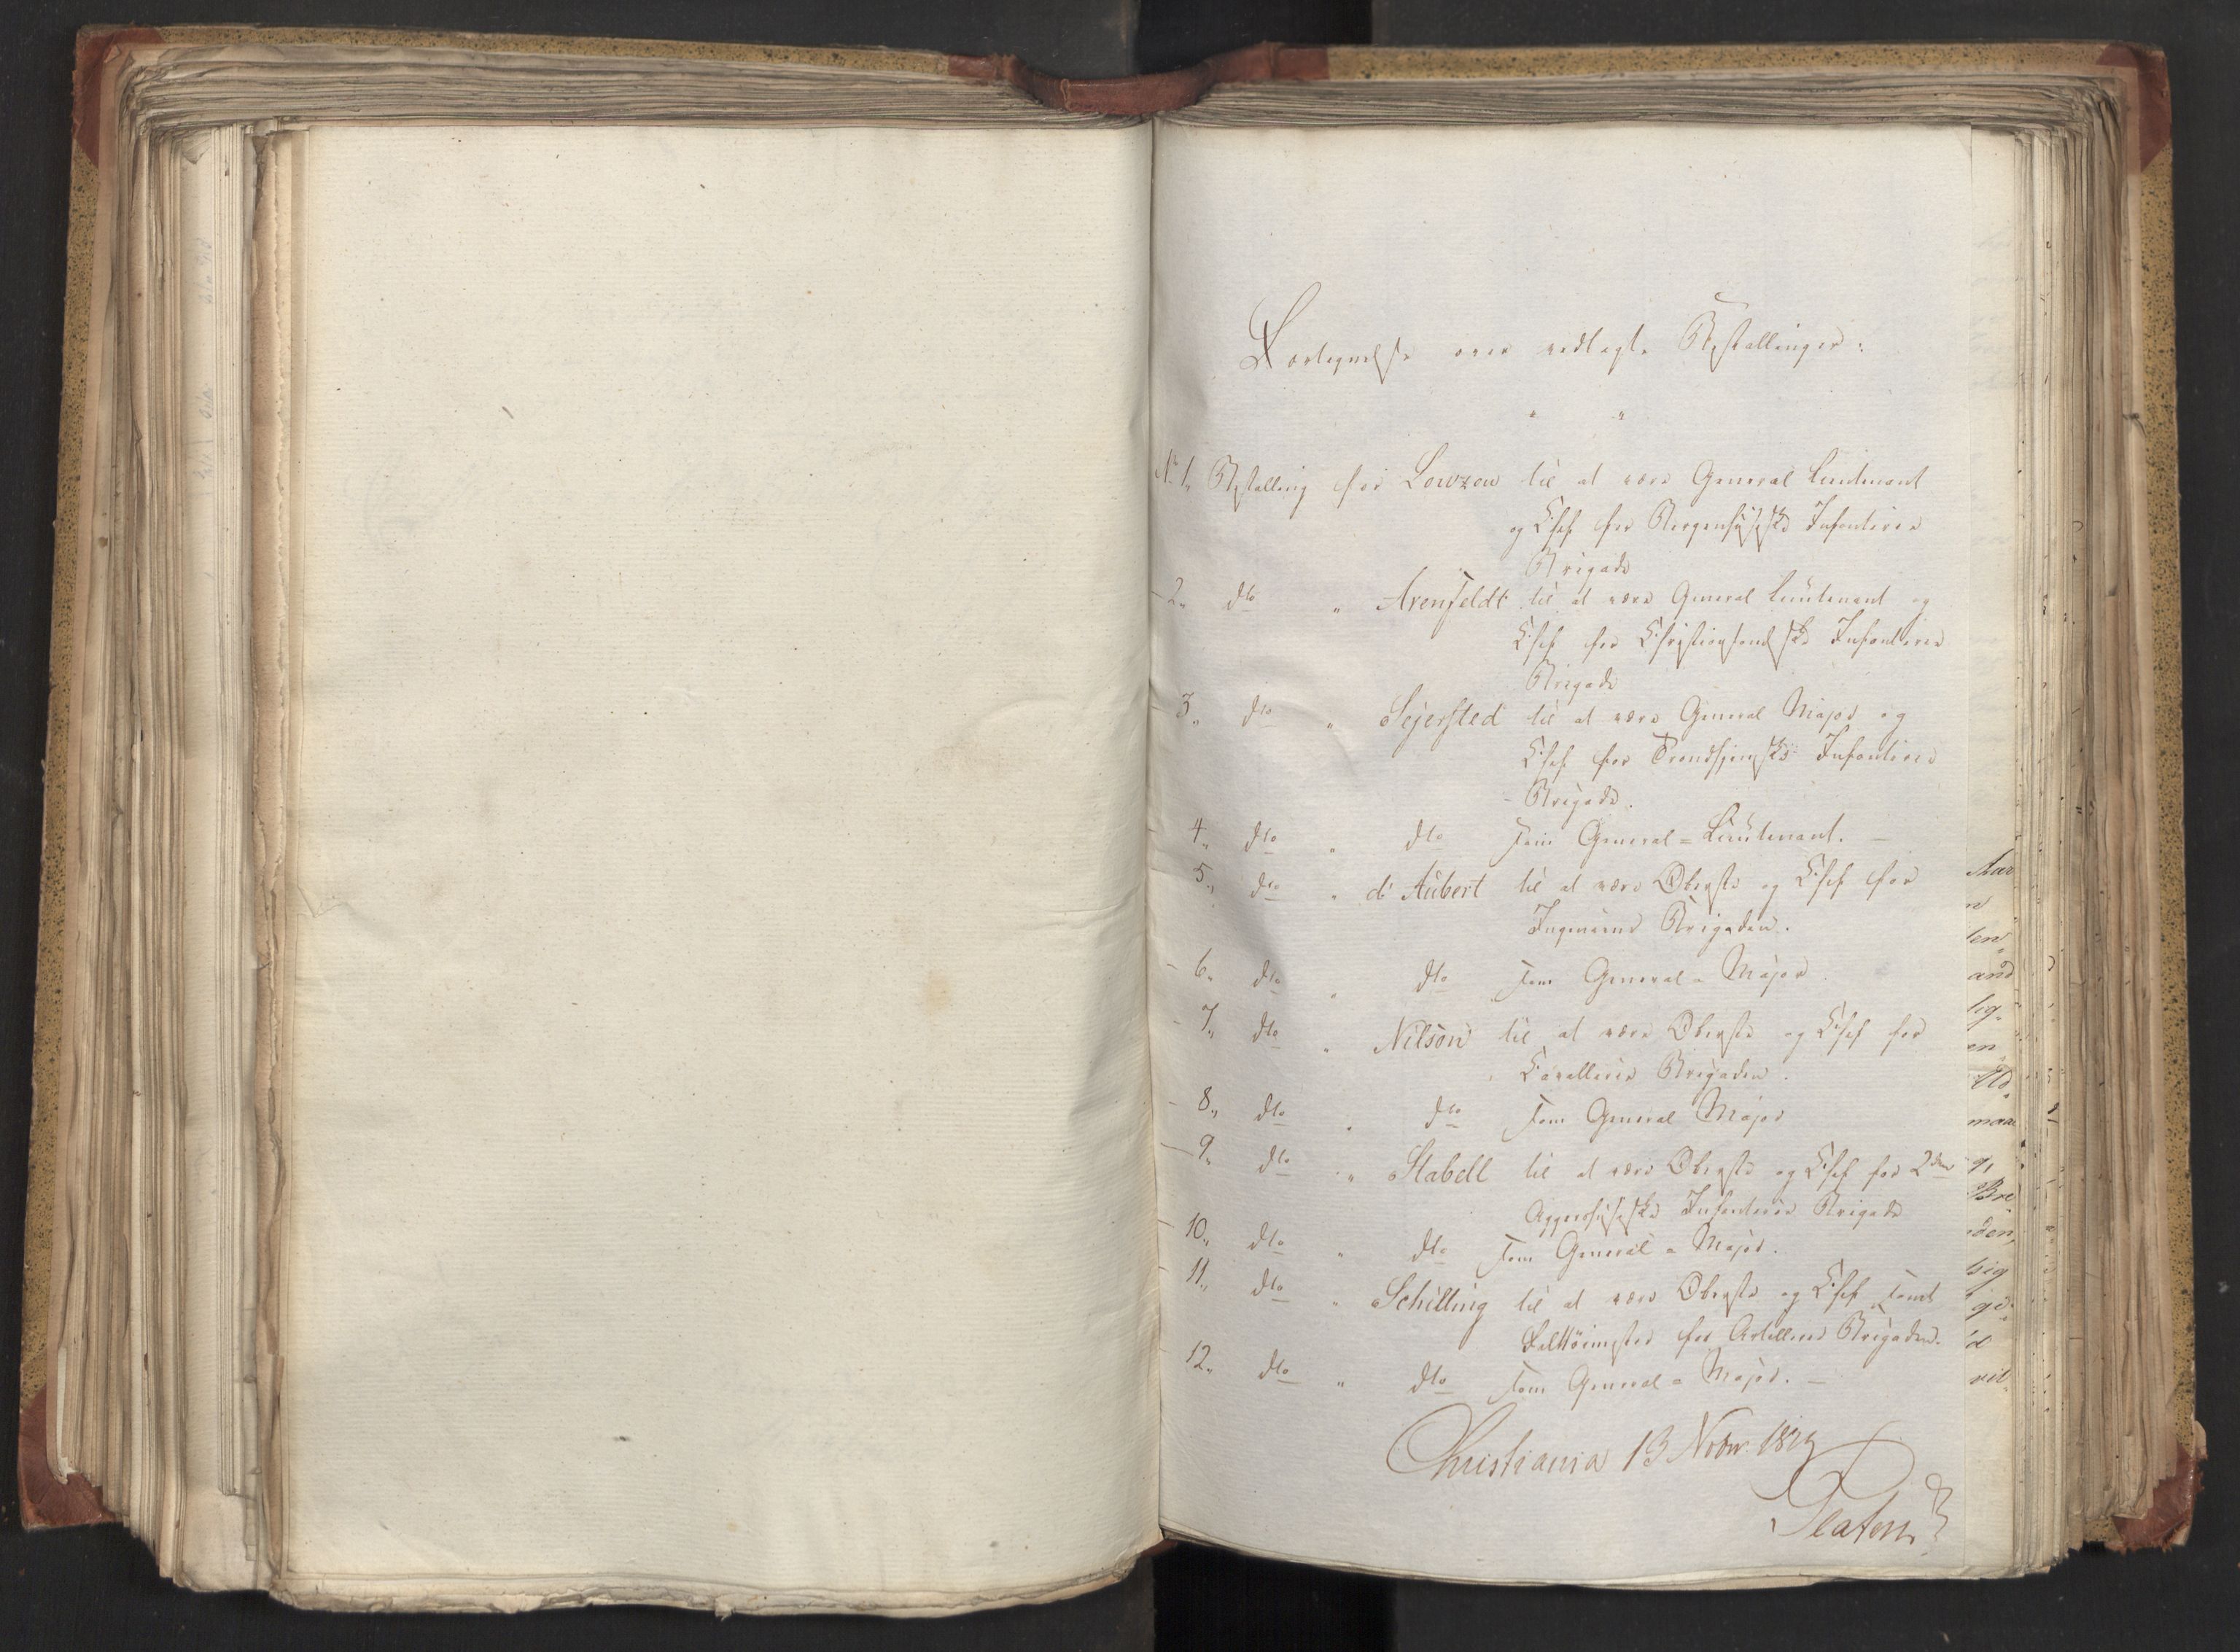 Fortegnelse over vedlagte Bestallinger:
" "
No 1, Bestalling for Lowzow til at være General Lieutenant
og Chef for Bergenhusiske Infanterie
Brigade
- 2, dto " Arenfeldt til at være General Lieutenant og
Chef for Christiansandske Infanterie
Brigade
- 3, dto " Sejersted til at være General Major og
Chef for Trondhjemske Infanterie
Brigade.
- 4, dto " dto som General-Lieutenant. -
5, dto " d' Aubert til at være Oberste og Chef for
Ingenieur Brigaden.
- 6, dto " dto som General-Major
- 7, dto " Nilson til at være Oberste og Chef for
Cavallerie Brigaden.
- 8, dto " dto som General Major
- 9, dto " Stabell til at være Oberste og Chef for 2den
Aggershusiske Infanterie Brigade
- 10, dto " dto som General-Major.
- 11, dto " Schilling til at være Oberste og Chef samt
Felttøimester for Artillerie Brigaden.
12, dto " dto som General-Major. -
Christiania 13 Novbr
Platen